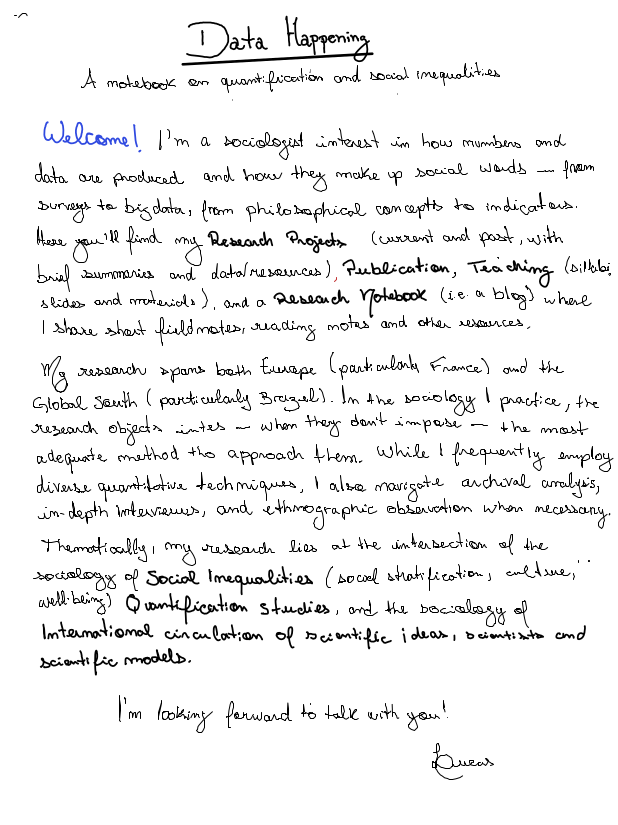 Data Happening
A notebook on quantification and social inequalities
Welcome! I'm a sociologist interest in how numbers and
data are produced and how they make up social words — from
surveys to big data, from philosophical concepts to indicators.
Here you'll find my Research Projects (current and past, with
brief summaries and data/resources), Publication, Teaching (sillabi,
slides and materials), and a Research Notebook (i.e. a blog) where
I share short fieldnotes, reading notes and other resources.
My research spans both Europe (particularly France) and the
Global South (particularly Brazil). In the sociology I practice, the
research objects invites — when they don't impose — the most
adequate method tho approach them. While I frequently employ
diverse quantitative techniques, I also navigate archival analysis,
in-depth interviews, and ethnographic observation when necessary.
Thematically, my research lies at the intersection of the
sociology of Social Inequalities (social stratification, culture,
well-being) Quantification Studies, and the sociology of
International circulation of scientific ideas, scientists and
scientific models.
I'm looking forward to talk with you!
Lucas